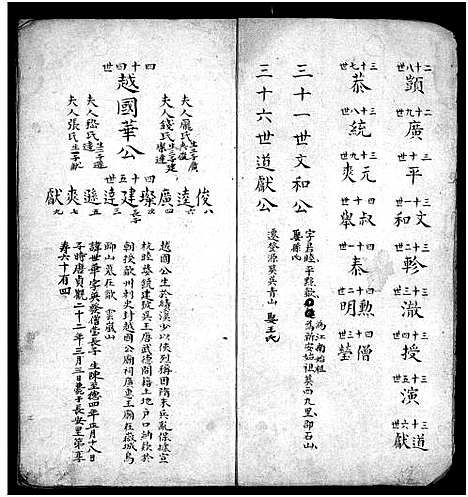 二十八世 顗 二十九世 廣 三十世 平 三十一世 文和 三十二世 軫 三十三世 澈 三十四世 授 三十五世 演 三十六世 道獻
三十七世 恭 三十八世 統 三十九世 元爽 四十世 叔舉 四十一世 泰 四十二世 勲明 四十三世 僧瑩
三十一世文和公
字 為江南始祖
為新安始祖葬西九里即石山
三十六世道獻公
遷登源葬吳青山 娶王氏
四十四世
越國華公
夫人龐氏生子廣
夫人錢氏生三子建璨達
夫人嵇氏生子遜逵
夫人張氏生一子獻
四十五世
俊八 逵六 廣四 璨二 建長子 達三 遜五 爽七 獻九
越國公生於績溪少以俠烈稱因隋末兵亂保據宣
杭睦婺統建號吳王唐武德間籍土地户口納欵於
朝授歙州刺史封越國公廟祠廣惠王廟在歙城烏
聊山墓在歙 雲嵐山
諱世華字英發僧瑩長子 生陳至德四年正月十八日
子時唐貞觀二十二年三月三日薨于長安里第
壽六十有四